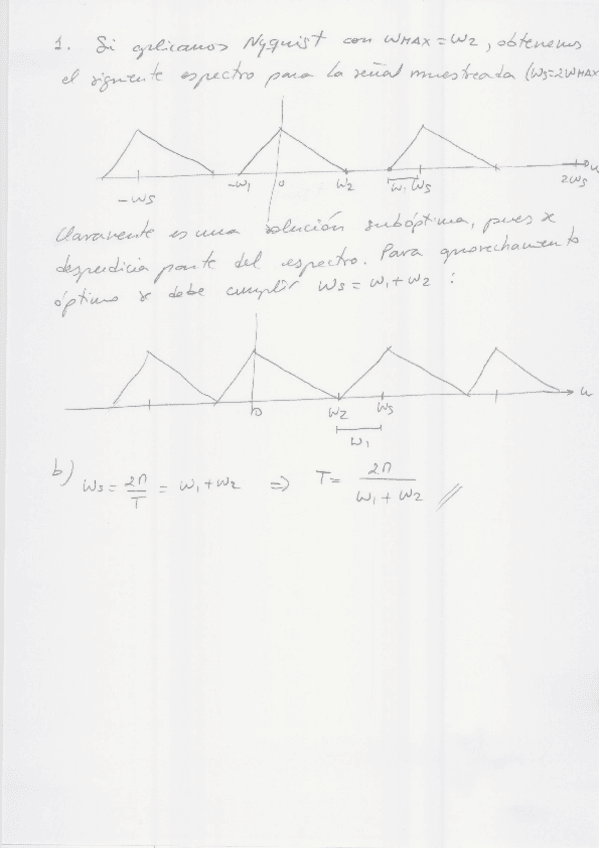 1. Si aplicamos Nyquist con ωMAX = ω2, obtenemos
el siguiente espectro para la señal muestreada (ωs=2ωMAX
-ωs -ω1 0 ω2 ω1 ωs 2ωs ω
Claramente es una solución subóptima, pues se
desperdicia parte del espectro. Para aprovechamiento
óptimo se debe cumplir ωs = ω1 + ω2 :
0 ω2 ωs ω
ω1
b) ωs = 2π/T = ω1 + ω2 => T = 2π/(ω1 + ω2) //